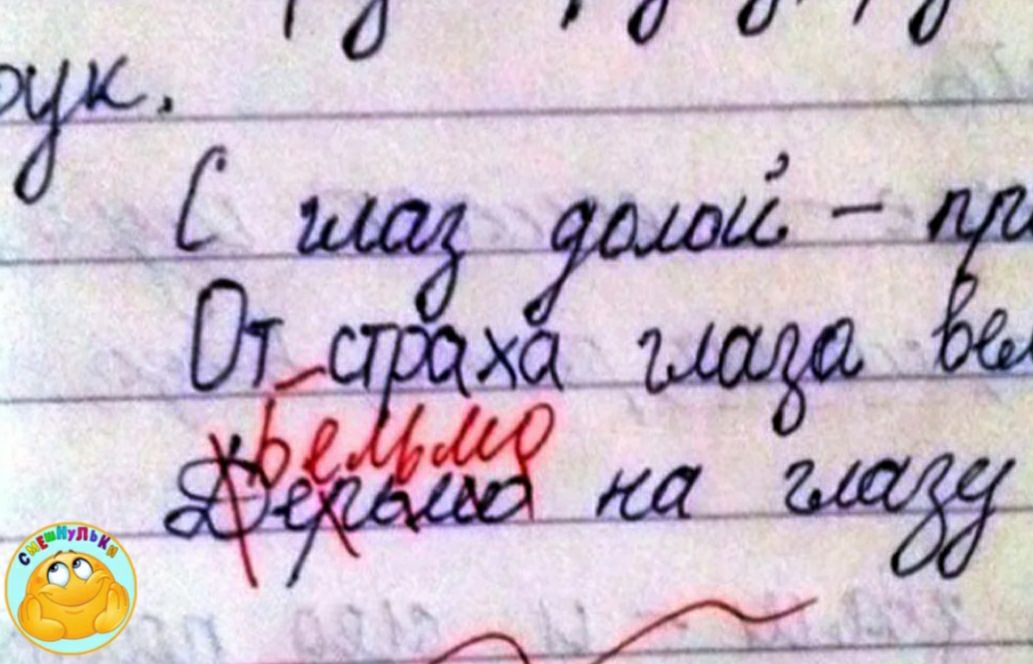 рук.
С глаз долой – пр
От страха глаза вел
Бельмо
Дерьмо на глазу
СМЕШНУЛЬКИ